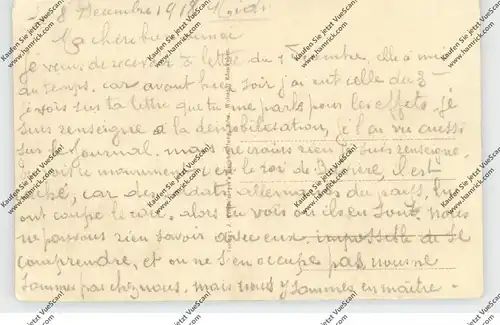 Le 8 Décembre 1918 Midi
Ma chère bien aimée
je viens de recevoir ta lettre du 1 Décembre, elle a mis
du temps. car avant hier soir j'ai eut celle du 3
je vois sur ta lettre que tu me parle pour les effets. je
suis renseigné a la démobilisation, je l'ai vu aussi
sur le Journal. mais ne crains rien je suis renseigné
monument c'est le roi de Bavière, il est
car des soldats allemands du pays, lui
ont coupé le cou. alors tu vois où ils en sont, nous
ne pouvons rien savoir avec eux. impossible de se
comprendre, et on ne s'en occupe pas, nous ne
sommes pas chez nous. mais nous y sommes en maître.
Kaufen Sie jetzt VueScan!
www.hamrick.com